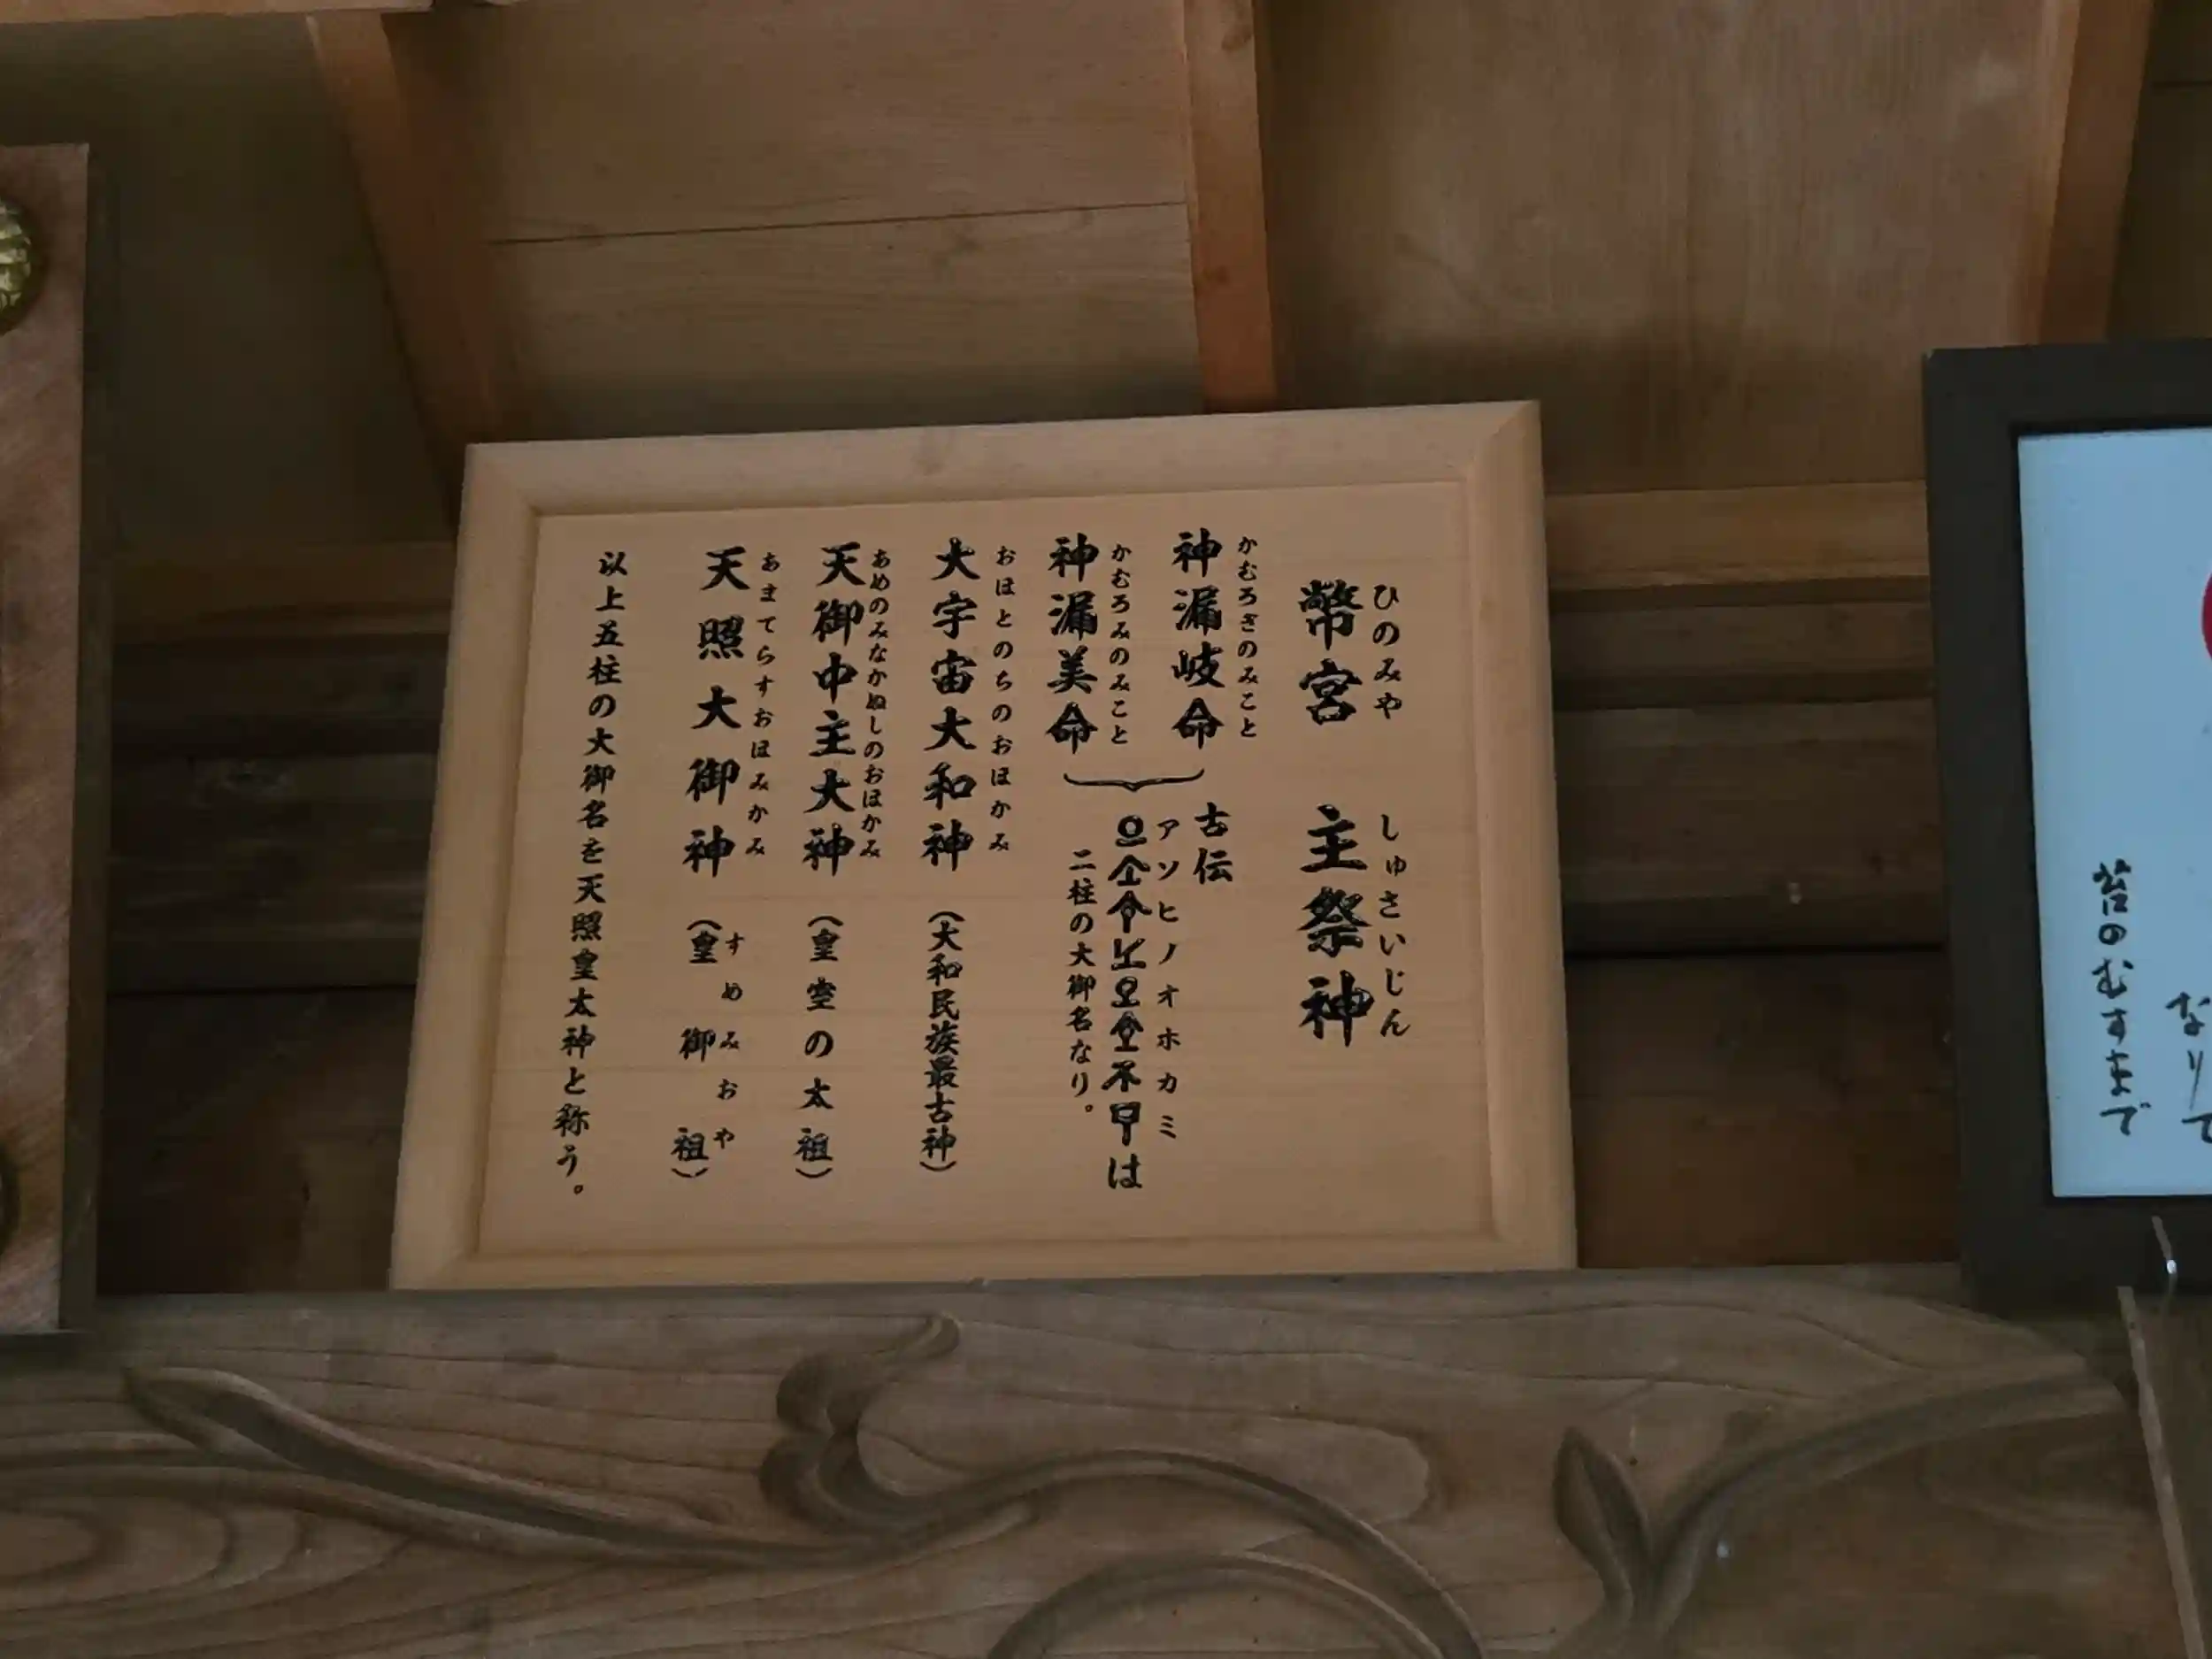 幣宮 主祭神
ひのみや しゅさいじん
神漏岐命
かむろぎのみこと
神漏美命
かむろみのみこと
古伝
アソヒノオホカミ
は
二柱の大御名なり。
大宇宙大和神 (大和民族最古神)
おほとのちのおほかみ
天御中主大神 (皇室の太祖)
あめのみなかぬしのおほかみ
天照大御神 (皇御祖)
あまてらすおほみかみ すめみおや
以上五柱の大御名を天照皇太神と称う。
なりて
苔のむすまで